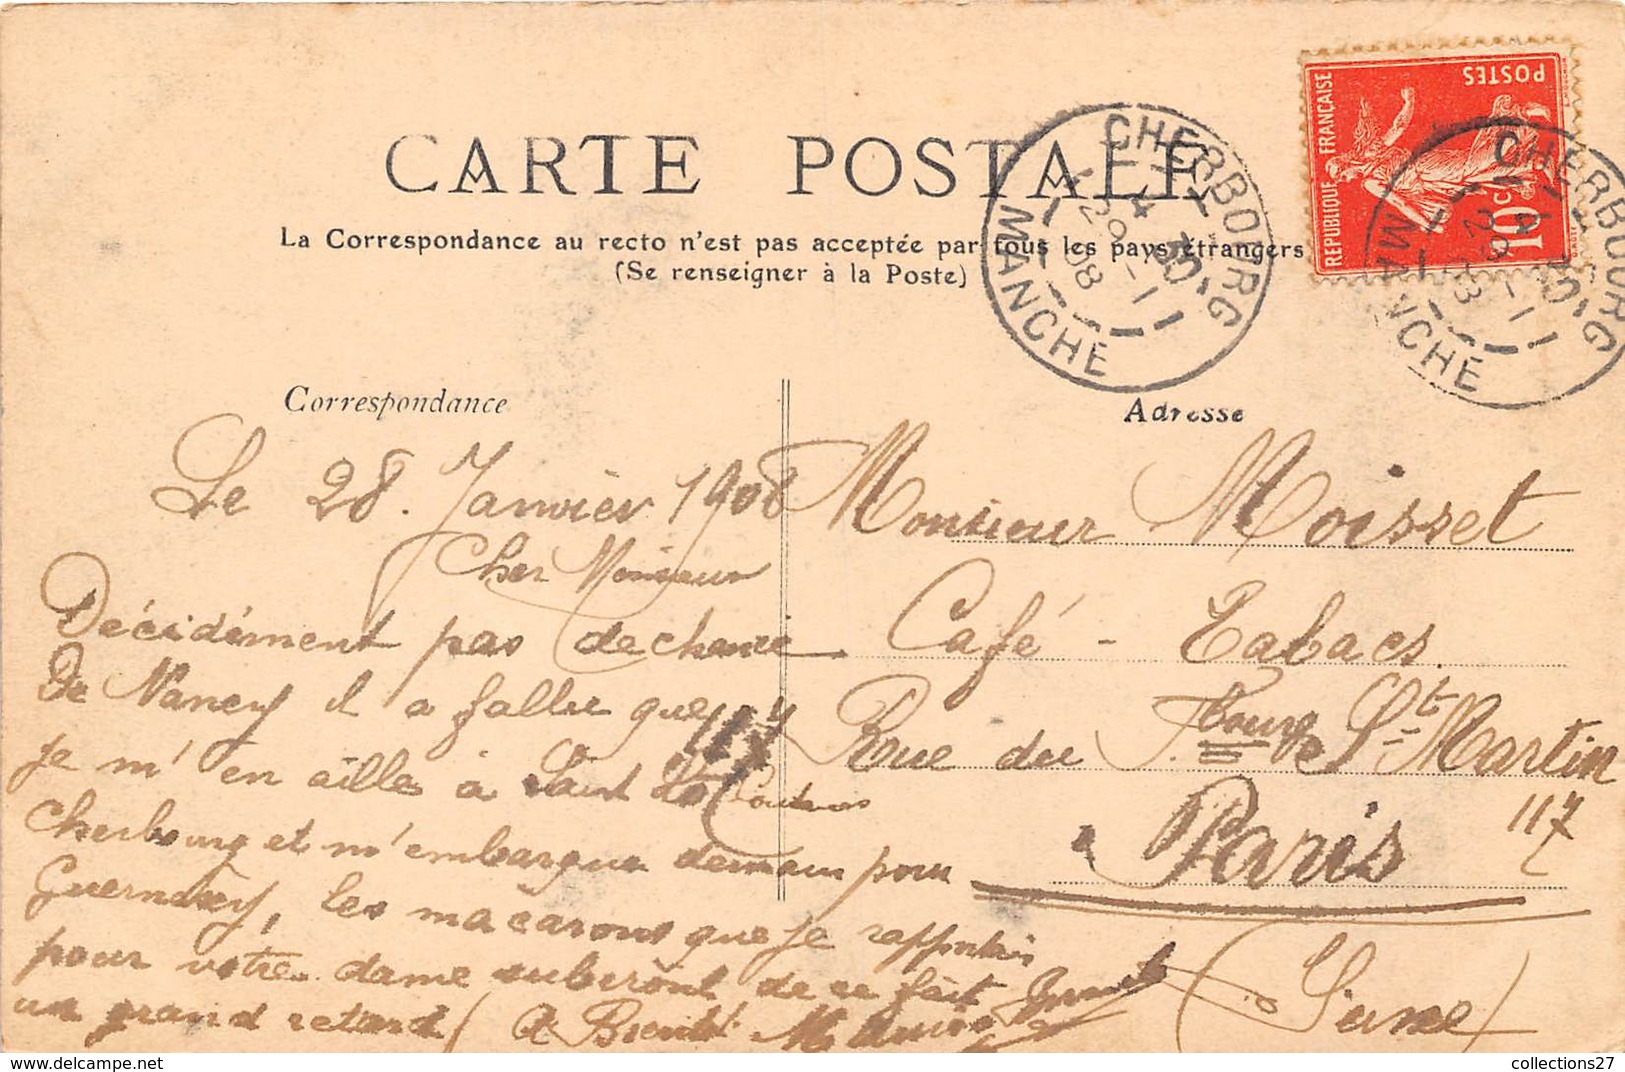 CARTE POSTALE
La Correspondance au recto n'est pas acceptée par tous les pays étrangers
(Se renseigner à la Poste)
REPUBLIQUE FRANÇAISE
POSTES
10c
CHERBOURG
MANCHE
29-1
08
CHERBOURG
MANCHE
29-1
Correspondance
Le 28. Janvier 1908
Cher Monsieur
Décidément pas de chance
De Nancy il a fallu que
je m'en aille à Saint Lô
Cherbourg et m'embarque demain pour
Guernesey, les macarons que je rapportais
pour vôtre dame subiront de ce fait
un grand retard
A Bientôt
Adresse
Monsieur Moisset
Café - Tabacs
117 Rue du Fbourg St Martin
117
Paris
(Seine)
collections27